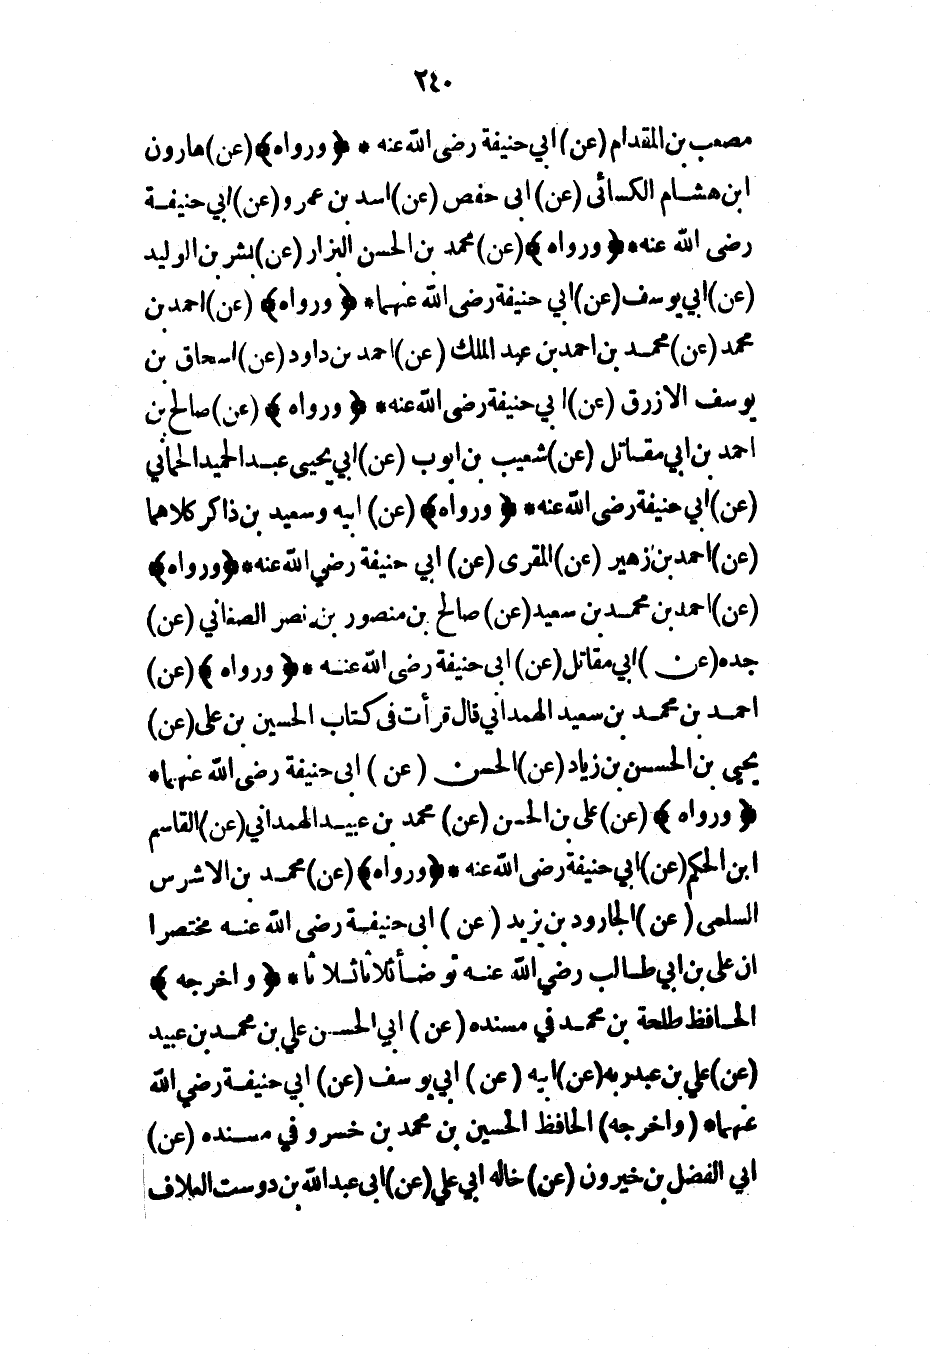 ٢٤٠
مصعب بن المقدام (عن) ابي حنيفة رضى الله عنه * ﴿ ورواه ﴾ (عن) هارون
ابن هشام الكسائى (عن) ابى حفص (عن) اسد بن عمرو (عن) ابي حنيفة
رضى الله عنه * ﴿ ورواه ﴾ (عن) محمد بن الحسن البزار (عن) بشر بن الوليد
(عن) ابي يوسف (عن) ابي حنيفة رضى الله عنهما * ﴿ ورواه ﴾ (عن) احمد بن
محمد (عن) محمد بن احمد بن عبد الملك (عن) احمد بن داود (عن) اسحاق بن
يوسف الازرق (عن) ابي حنيفة رضى الله عنه * ﴿ ورواه ﴾ (عن) صالح بن
احمد بن ابي مقاتل (عن) شعيب بن ايوب (عن) ابي يحيى عبد الحميد الحماني
(عن) ابي حنيفة رضى الله عنه * ﴿ ورواه ﴾ (عن) ابيه وسعيد بن ذاكر كلاهما
(عن) احمد بن زهير (عن) المقرى (عن) ابي حنيفة رضي الله عنه * ﴿ ورواه ﴾
(عن) احمد بن محمد بن سعيد (عن) صالح بن منصور بن نصر الصغاني (عن)
جده (عن) ابي مقاتل (عن) ابى حنيفة رضى الله عنه * ﴿ ورواه ﴾ (عن)
احمد بن محمد بن سعيد الهمداني قال قرأت فى كتاب الحسين بن على (عن)
يحيى بن الحسن بن زياد (عن) الحسن (عن) ابى حنيفة رضى الله عنهما *
﴿ ورواه ﴾ (عن) على بن الحسن (عن) محمد بن عبيد الهمداني (عن) القاسم
ابن الحكم (عن) ابي حنيفة رضى الله عنه * ﴿ ورواه ﴾ (عن) محمد بن الاشرس
السلمى (عن) الجارود بن يزيد (عن) ابى حنيفة رضى الله عنه مختصرا
ان على بن ابي طالب رضي الله عنه توضأ ثلاثا ثلاثا * ﴿ واخرجه ﴾
الحافظ طلحة بن محمد في مسنده (عن) ابي الحسن علي بن محمد بن عبيد
(عن) علي بن عبدربه (عن) ابيه (عن) ابي يوسف (عن) ابي حنيفة رضي الله
عنهما * (واخرجه) الحافظ الحسين بن محمد بن خسرو في مسنده (عن)
ابي الفضل بن خيرون (عن) خاله ابي علي (عن) ابى عبد الله بن دوست العلاف